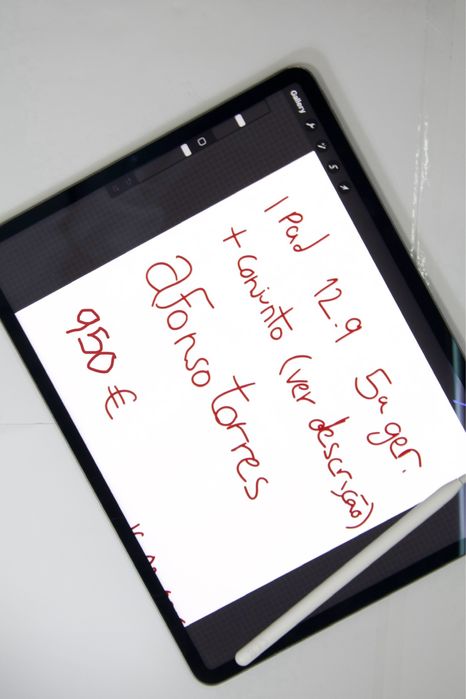 Gallery
iPad 12.9 5a ger.
+ conjunto (ver descrição)
afonso torres
950 €